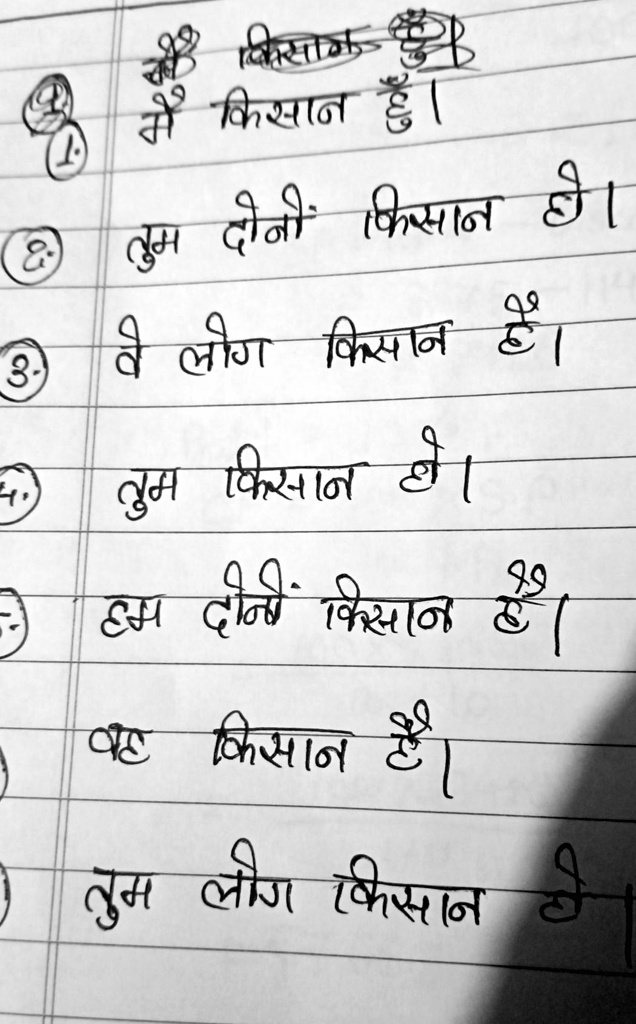 1. मै किसान हुँ।
2. तुम दोनों किसान हो।
3. वे लोग किसान है।
4. तुम किसान हो।
5. हम दोनों किसान है।
वह किसान है।
तुम लोग किसान हो।